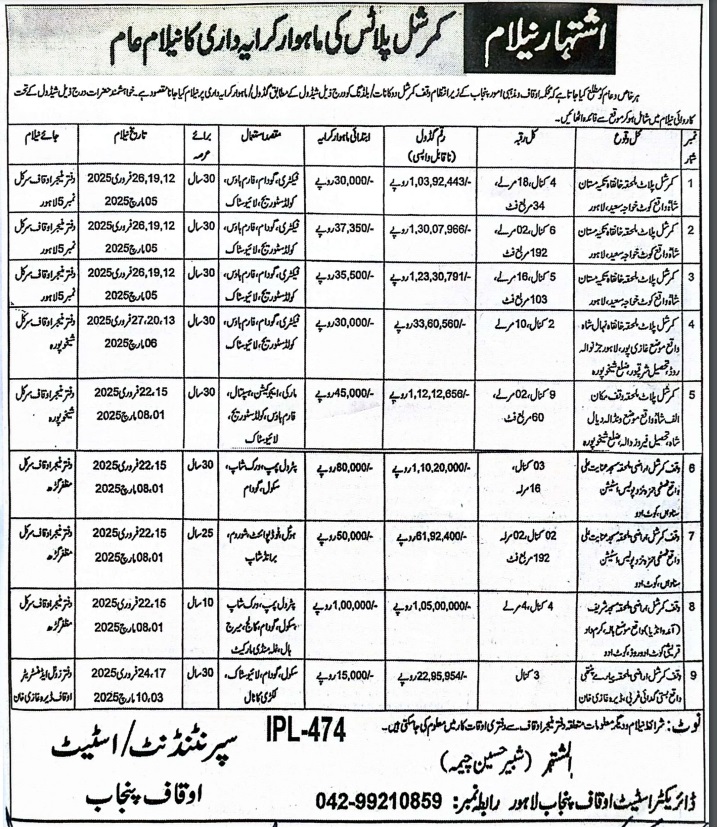 اشتہار نیلام
کمرشل پلاٹس کی ماہوار کرایہ داری کا نیلام عام
ہر خاص و عام کو مطلع کیا جاتا ہے کہ محکمہ اوقاف و مذہبی امور پنجاب کے زیر انتظام وقف کمرشل دوکانات/بلڈنگ کو درج ذیل شیڈول کے مطابق گڈول/ماہوار کرایہ داری پر نیلام کیا جانا مقصود ہے۔ خواہشمند حضرات درج ذیل شیڈول کے تحت
کاروائی نیلام میں شامل ہو کر موقع سے فائدہ اٹھائیں۔
نمبر شمار | محل وقوع | کل رقبہ | رقم گڈول (ناقابل واپسی) | ابتدائی ماہوار کرایہ | مقصد استعمال | برائے عرصہ | تاریخ نیلام | جائے نیلام
1 | کمرشل پلاٹ ملحقہ خانقاہ تکیہ مستان شاہ واقع کوٹ خواجہ سعید، لاہور | 4 کنال، 18 مرلے، 34 مربع فٹ | 1,03,92,443/- روپے | 30,000/- روپے | فیکٹری، گودام، فارم ہاؤس، کولڈ سٹوریج، لائیوسٹاک | 30 سال | 26,19,12 فروری 2025 05 مارچ 2025 | دفتر منیجر اوقاف سرکل نمبر 5 لاہور
2 | کمرشل پلاٹ ملحقہ خانقاہ تکیہ مستان شاہ واقع کوٹ خواجہ سعید، لاہور | 6 کنال، 02 مرلے، 192 مربع فٹ | 1,30,07,966/- روپے | 37,350/- روپے | فیکٹری، گودام، فارم ہاؤس، کولڈ سٹوریج، لائیوسٹاک | 30 سال | 26,19,12 فروری 2025 05 مارچ 2025 | دفتر منیجر اوقاف سرکل نمبر 5 لاہور
3 | کمرشل پلاٹ ملحقہ خانقاہ تکیہ مستان شاہ واقع کوٹ خواجہ سعید، لاہور | 5 کنال، 16 مرلے، 103 مربع فٹ | 1,23,30,791/- روپے | 35,500/- روپے | فیکٹری، گودام، فارم ہاؤس، کولڈ سٹوریج، لائیوسٹاک | 30 سال | 26,19,12 فروری 2025 05 مارچ 2025 | دفتر منیجر اوقاف سرکل نمبر 5 لاہور
4 | کمرشل پلاٹ ملحقہ خانقاہ نہال شاہ واقع موضع غازی پور، لاہور جڑانوالہ روڈ، تحصیل شرقپور، ضلع شیخوپورہ | 2 کنال، 10 مرلے | 33,60,560/- روپے | 30,000/- روپے | فیکٹری، گودام، فارم ہاؤس، کولڈ سٹوریج، لائیوسٹاک | 30 سال | 27,20,13 فروری 2025 06 مارچ 2025 | دفتر منیجر اوقاف سرکل شیخوپورہ
5 | کمرشل پلاٹ ملحقہ وقف مکان الف شاہ واقع موضع ونڈالہ دیال شاہ، تحصیل فیروزوالہ، ضلع شیخوپورہ | 9 کنال، 02 مرلے، 60 مربع فٹ | 1,12,12,656/- روپے | 45,000/- روپے | مارکی، ایجوکیشن، ہسپتال، فارم ہاؤس، کولڈ سٹوریج، لائیوسٹاک | 30 سال | 22,15 فروری 2025 08,01 مارچ 2025 | دفتر منیجر اوقاف سرکل شیخوپورہ
6 | وقف کمرشل اراضی ملحقہ مسجد عنایت علی واقع نزد پولیس اسٹیشن سناواں، کوٹ ادو | 03 کنال، 16 مرلہ | 1,10,20,000/- روپے | 80,000/- روپے | پٹرول پمپ، ورک شاپ، سکول، گودام | 30 سال | 22,15 فروری 2025 08,01 مارچ 2025 | دفتر منیجر اوقاف سرکل مظفر گڑھ
7 | وقف کمرشل اراضی ملحقہ مسجد عنایت علی واقع نزد پولیس اسٹیشن سناواں، کوٹ ادو | 02 کنال، 02 مرلہ 192 مربع فٹ | 61,92,400/- روپے | 50,000/- روپے | ہوٹل، فوڈ پوائنٹ، شوروم، برانڈ شاپ | 25 سال | 22,15 فروری 2025 08,01 مارچ 2025 | دفتر منیجر اوقاف سرکل مظفر گڑھ
8 | وقف کمرشل اراضی ملحقہ مسجد شریف واقع موضع ہالہ، کرم داد قریشی کوٹ ادو روڈ، کوٹ ادو | 4 کنال، 4 مرلے | 1,05,00,000/- روپے | 1,00,000/- روپے | پٹرول پمپ، ورک شاپ، سکول، گودام، کالج، میرج ہال، غلہ منڈی مارکیٹ | 10 سال | 22,15 فروری 2025 08,01 مارچ 2025 | دفتر منیجر اوقاف سرکل مظفر گڑھ
9 | وقف کمرشل اراضی ملحقہ واقع بستی گدائی غربی، ڈیرہ غازی خان | 3 کنال | 22,95,954/- روپے | 15,000/- روپے | سکول، گودام، لائیوسٹاک، لکڑی کا ٹال | 30 سال | 24,17 فروری 2025 10,03 مارچ 2025 | دفتر زونل ایڈمنسٹریٹر اوقاف ڈیرہ غازی خان
نوٹ: شرائط نیلام و دیگر معلومات متعلقہ دفتر منیجر اوقاف سے دفتری اوقات کار میں معلوم کی جا سکتی ہیں۔
IPL-474
سپرنٹنڈنٹ/اسٹیٹ
اوقاف پنجاب
المشتہر (شبیر حسین چیمہ)
ڈائریکٹر اسٹیٹ اوقاف پنجاب لاہور رابطہ نمبر: 042-99210859